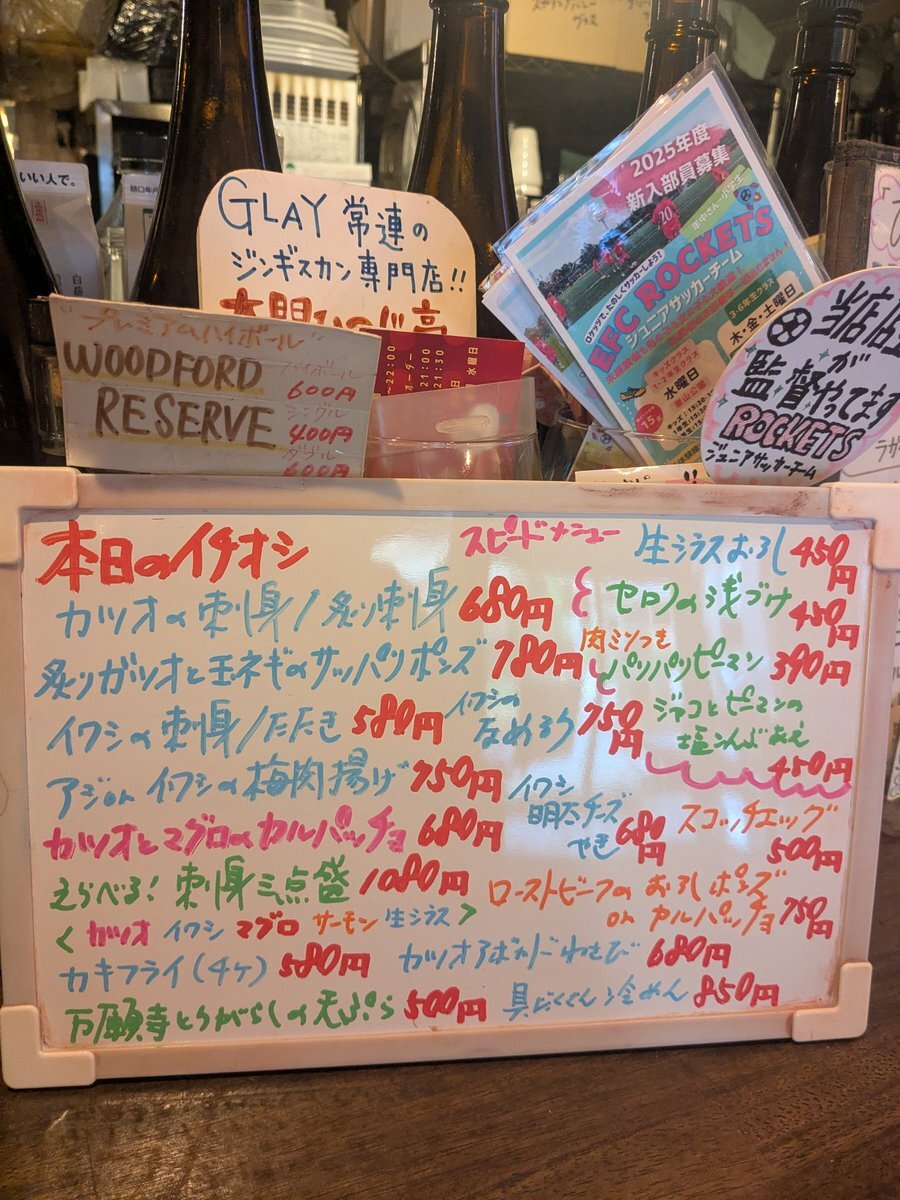 いい人で。
GLAY 常連の
ジンギスカン専門店!!
"プレミアムハイボール"
WOODFORD
RESERVE
ハイボール
600円
シングル
400円
ダブル
600円
~22:00
21:00
21:30
水曜日
2025年度
新入部員募集
年中さん~小学生
ロケッツで、たのしくサッカーしよう!
EFC ROCKETS
ジュニアサッカーチーム
キッズクラス
1・2年生クラス
水曜日
3-6年生クラス
木・金・土曜日
当店
監督が
やってます
ROCKETS
ジュニアサッカーチーム
本日のイチオシ
カツオの刺身/炙り刺身 680円
炙りガツオと玉ネギのサッパリポンズ 780円
イワシの刺身/たたき 580円
イワシの
なめろう 750円
アジorイワシの梅肉揚げ 750円
イワシ
明太チーズ
やき 680円
カツオとマグロのカルパッチョ 680円
えらべる!刺身三点盛 1080円
<カツオ イワシ マグロ サーモン 生シラス>
カキフライ(4ヶ) 580円
カツオアボカドわさび 680円
万願寺とうがらしの天ぷら 500円
具だくさん冷めん 850円
スピードメニュー
生シラスおろし 450円
セロリの浅づけ 450円
肉ミソつき
パリパリピーマン 390円
ジャコとピーマンの
塩こんぶあえ
450円
スコッチエッグ
500円
ローストビーフのおろしポンズ
or カルパッチョ 750円